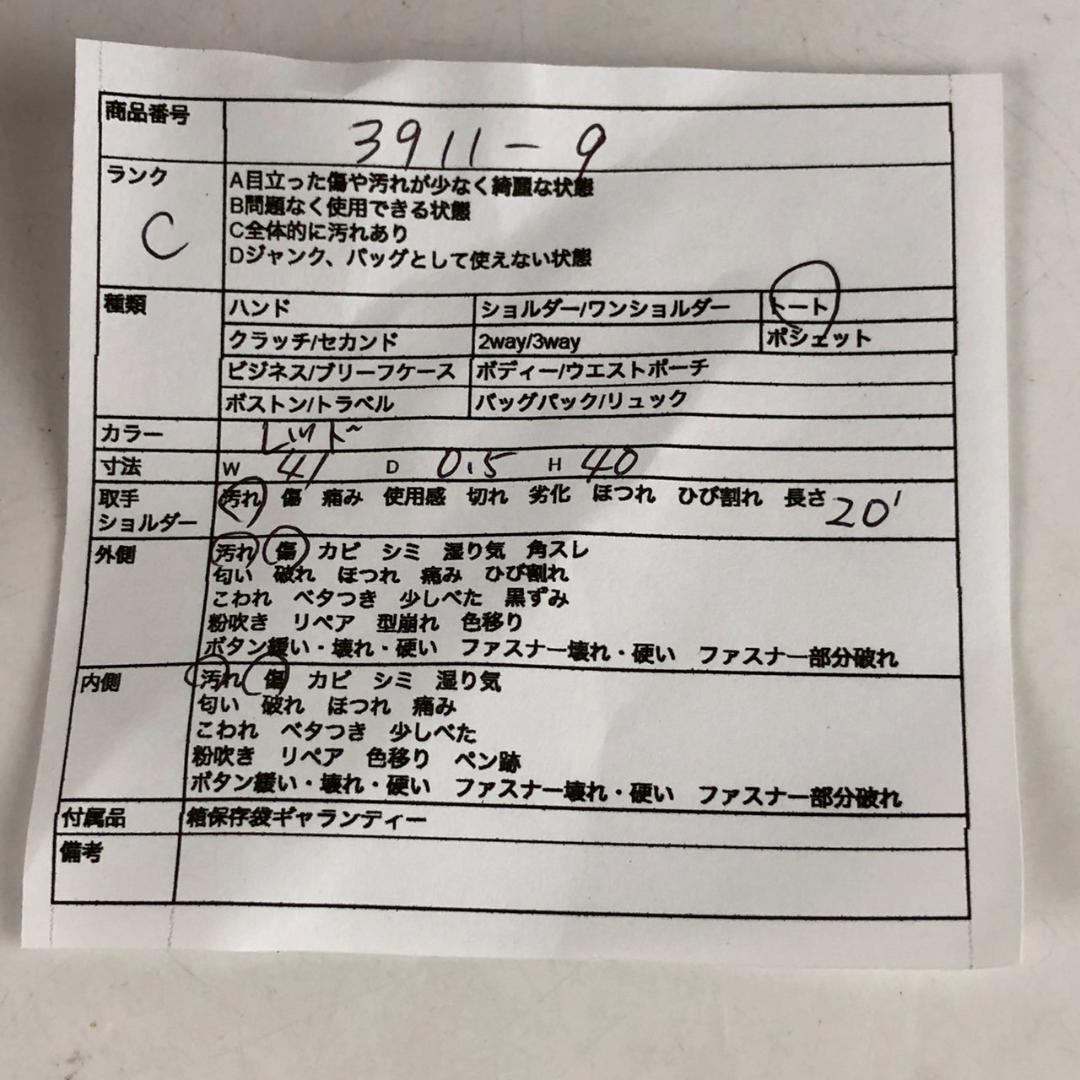 商品番号 3911-9
ランク C
A目立った傷や汚れが少なく綺麗な状態
B問題なく使用できる状態
C全体的に汚れあり
Dジャンク、バッグとして使えない状態
種類 ハンド ショルダー/ワンショルダー トート
クラッチ/セカンド 2way/3way ポシェット
ビジネス/ブリーフケース ボディー/ウエストポーチ
ボストン/トラベル バッグパック/リュック
カラー レッド
寸法 W 41 D 0.5 H 40
取手 汚れ 傷 痛み 使用感 切れ 劣化 ほつれ ひび割れ 長さ 20
ショルダー
外側 汚れ 傷 カビ シミ 湿り気 角スレ
匂い 破れ ほつれ 痛み ひび割れ
こわれ ベタつき 少しべた 黒ずみ
粉吹き リペア 型崩れ 色移り
ボタン緩い・壊れ・硬い ファスナー壊れ・硬い ファスナー部分破れ
内側 汚れ 傷 カビ シミ 湿り気
匂い 破れ ほつれ 痛み
こわれ ベタつき 少しべた
粉吹き リペア 色移り ペン跡
ボタン緩い・壊れ・硬い ファスナー壊れ・硬い ファスナー部分破れ
付属品 箱保存袋ギャランティー
備考